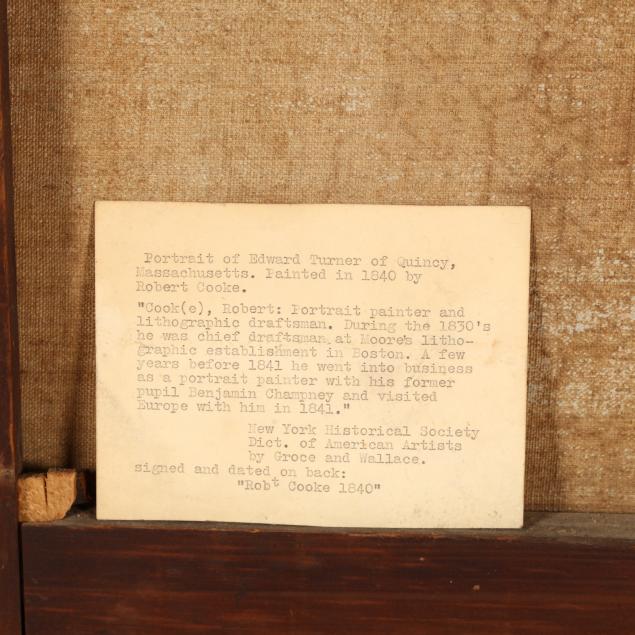 Portrait of Edward Turner of Quincy,
Massachusetts. Painted in 1840 by
Robert Cooke.
"Cook(e), Robert: Portrait painter and
lithographic draftsman. During the 1830's
he was chief draftsman at Moore's litho-
graphic establishment in Boston. A few
years before 1841 he went into business
as a portrait painter with his former
pupil Benjamin Champney and visited
Europe with him in 1841."
New York Historical Society
Dict. of American Artists
by Groce and Wallace.
signed and dated on back:
"Robt Cooke 1840"